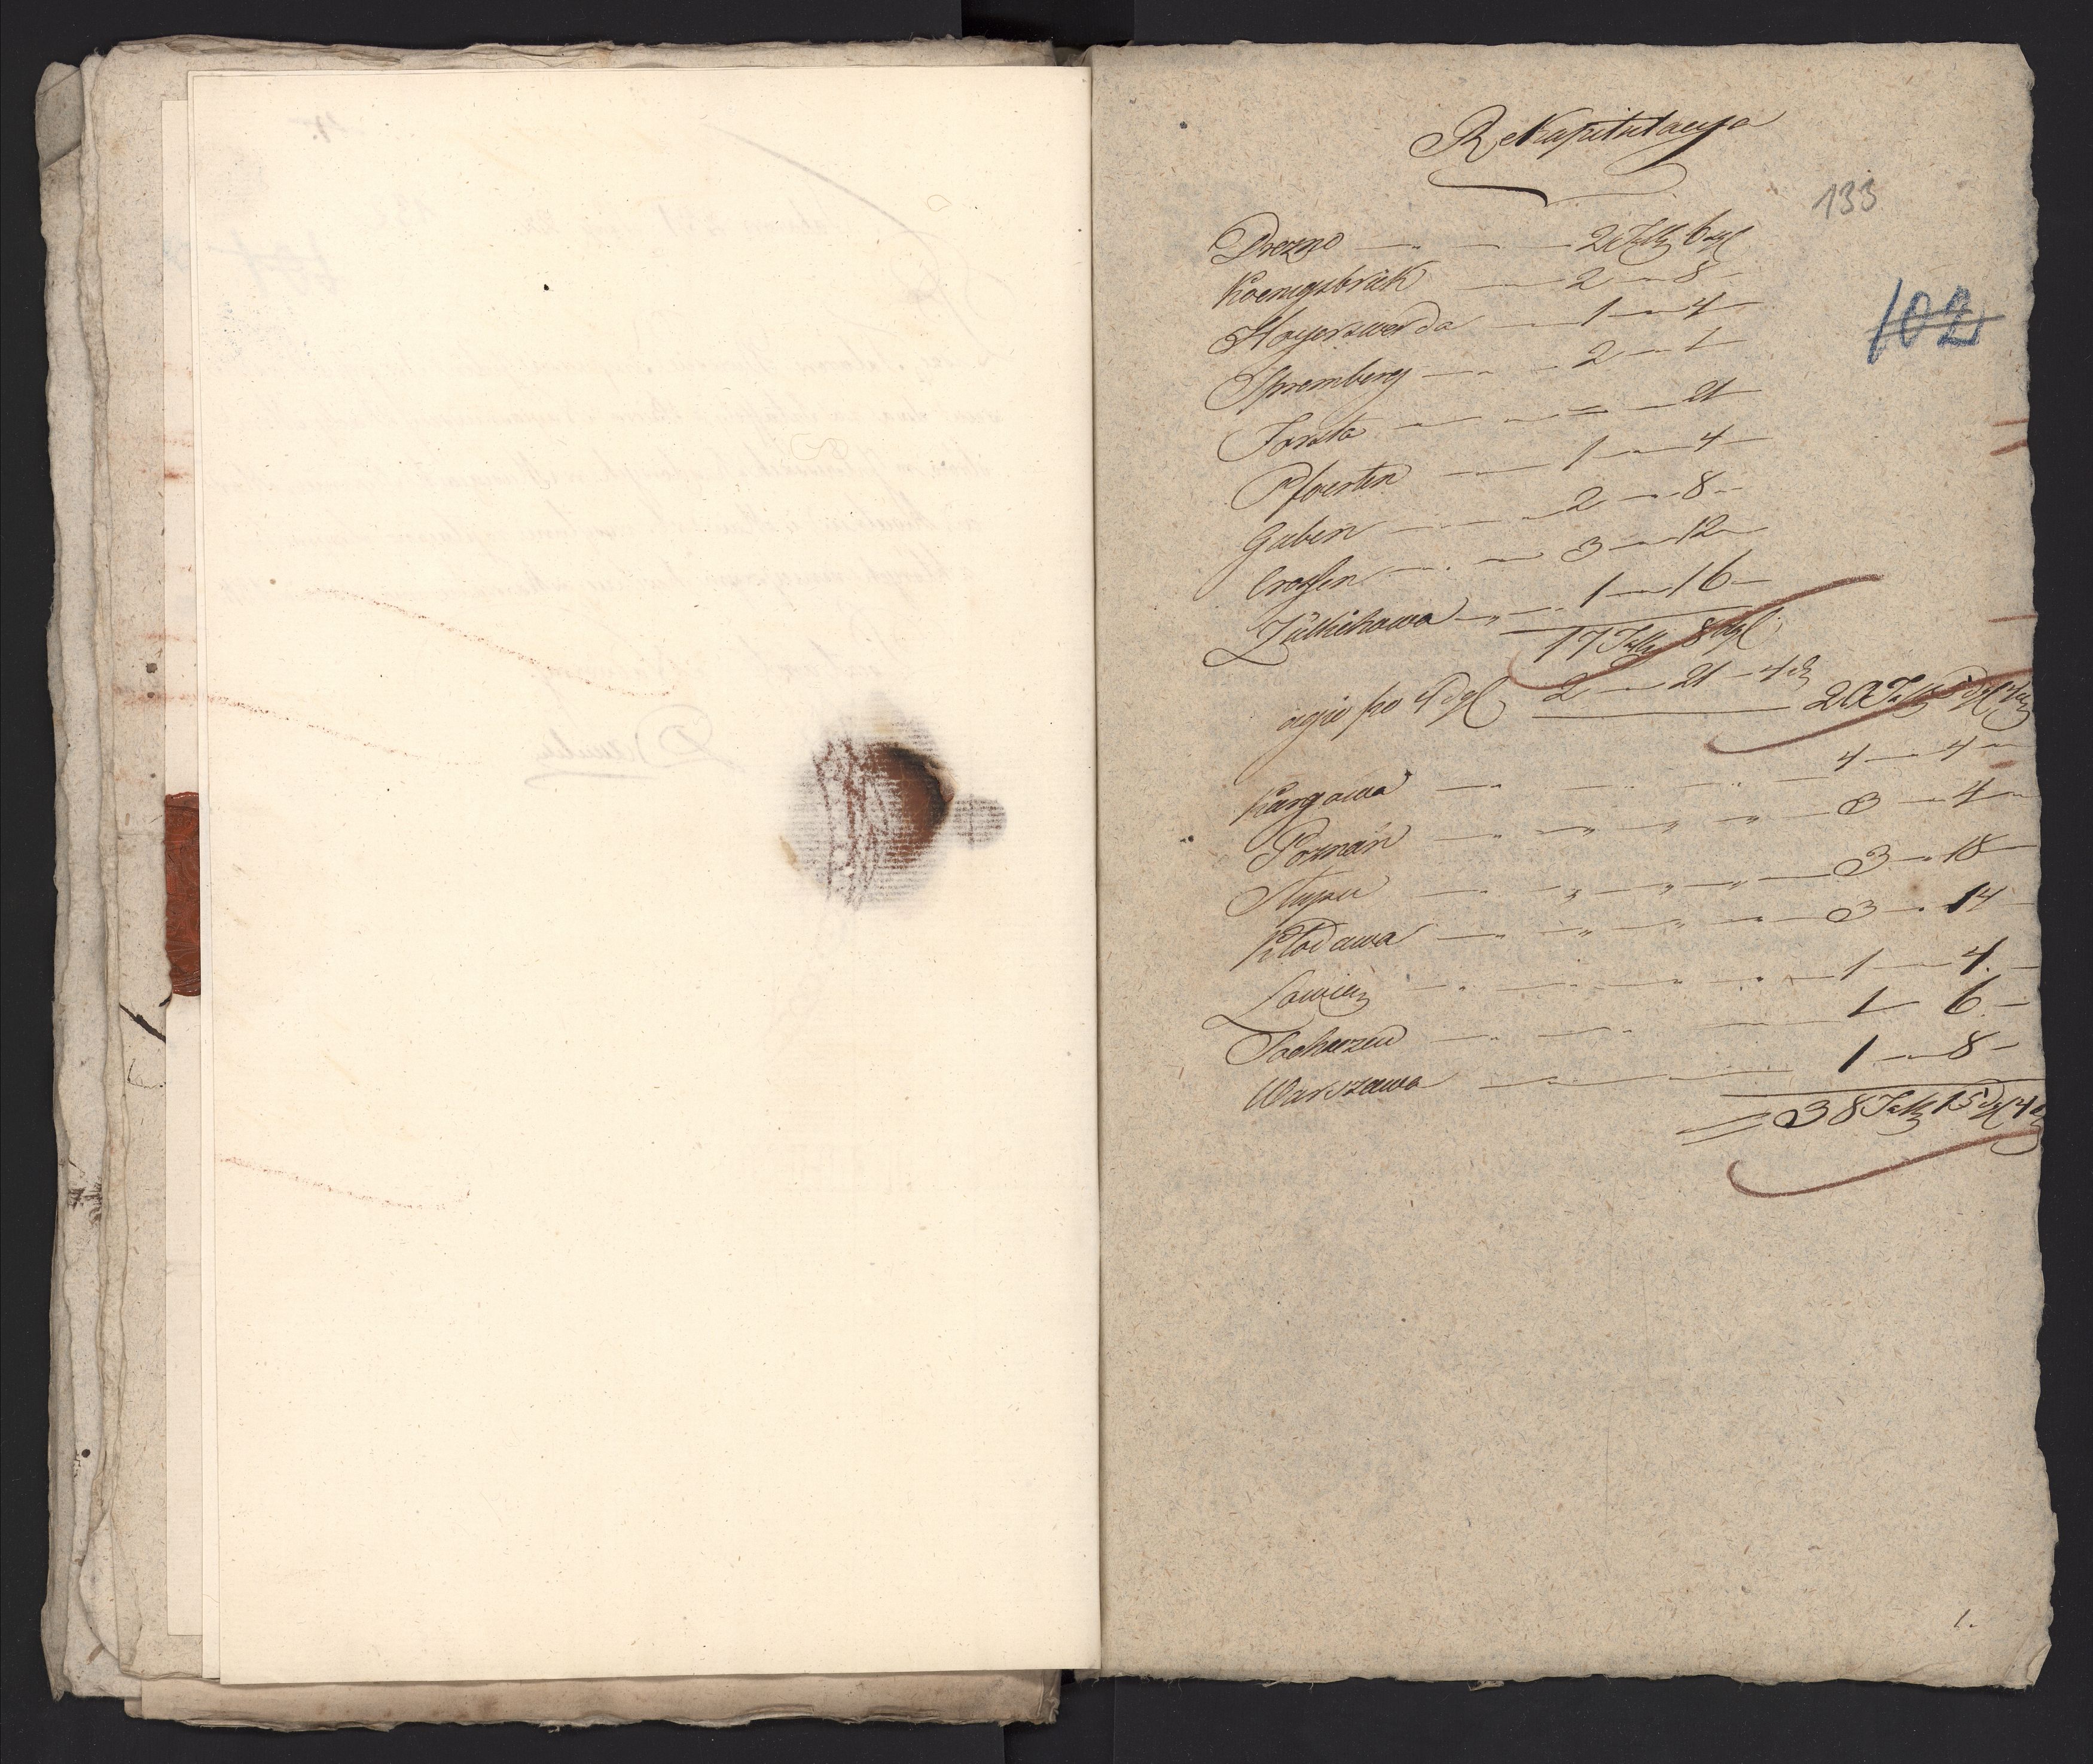 Rekapitulacyja
133
102
Drezno — — — 2 Tall 6 dgl
Koenigsbrück — 2 — 8 —
Hoyerswerda — 1 — 4 —
Spremberg — — 2 — 1 —
Forsta — — = — 21 —
Pfoerten — 1 — 4 —
Guben — — 2 — 8 —
Crossen — — 3 — 12 —
Züllichowa — 1 — 16 —
17 Tall 8 dgl
agio po 4 dgl 2 — 21 — 4 d
20 Tall 5 dgl 4 d
Kargowa — — — 4 — 4 —
Poznań — — — — 3 — 4 —
Słupca — — — — 3 — 18 —
Kłodawa — — — — 3 — 14 —
Łowicz — — — — 1 — 4 —
Sochaczew — — — 1 — 6 —
Warszawa — — — 1 — 8 —
= 38 Tall 15 dgl 4 d
1.